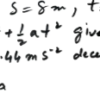 s = 8 m, t
+ ½ at² give
.44 m s⁻² dece